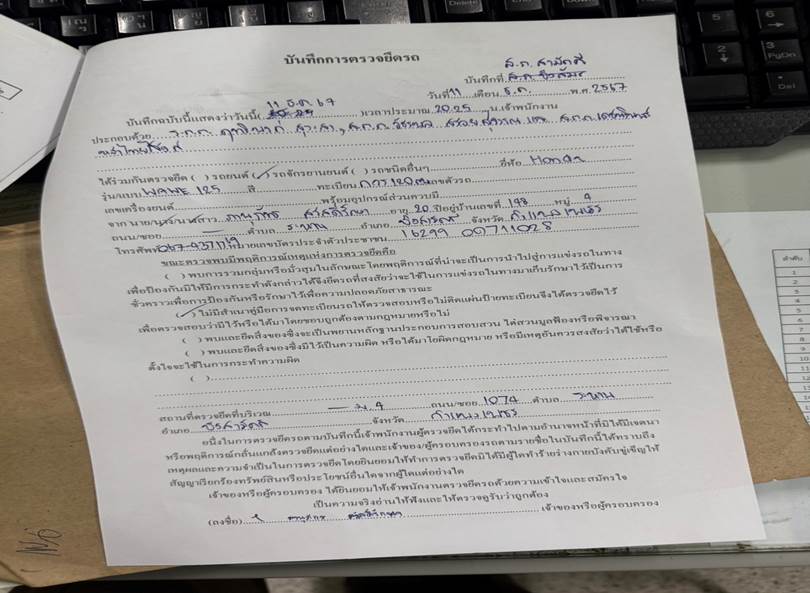 บันทึกการตรวจยึดรถ
บันทึกที่
วันที่ 11 เดือน ธ.ค. พ.ศ. 2567
11 ธ.ค. 67
บันทึกฉบับนี้แสดงว่าวันนี้( )เวลาประมาณ 20.25 น.เจ้าพนักงาน
ประกอบด้วย
ได้ร่วมกันตรวจยึด ( ) รถยนต์ (✓) รถจักรยานยนต์ ( ) รถชนิดอื่นๆ ยี่ห้อ Honda
รุ่น/แบบ WAVE 125 สี ทะเบียน เลขตัวรถ
เลขเครื่องยนต์ พร้อมอุปกรณ์ส่วนควบมี
จาก นาย/นาง/นางสาว อายุ 20 ปีอยู่บ้านเลขที่ 198 หมู่ 9
ถนน/ซอย ตำบล ระหาน อำเภอ บึงสามัคคี จังหวัด กำแพงเพชร
โทรศัพท์ หมายเลขบัตรประจำตัวประชาชน
ขณะตรวจพบมีพฤติการณ์เหตุแห่งการตรวจยึดคือ
( ) พบการรวมกลุ่มหรือมั่วสุมในลักษณะโดยพฤติการณ์ที่น่าจะเป็นการนำไปสู่การแข่งรถในทาง
เพื่อป้องกันมิให้มีการกระทำดังกล่าวได้จึงยึดรถที่สงสัยว่าจะใช้ในการแข่งรถในทางมาเก็บรักษาไว้เป็นการ
ชั่วคราวเพื่อการป้องกันหรือรักษาไว้เพื่อความปลอดภัยสาธารณะ
(✓) ไม่มีสำเนาคู่มือการจดทะเบียนรถให้ตรวจสอบหรือไม่ติดแผ่นป้ายทะเบียนจึงได้ตรวจยึดไว้
เพื่อตรวจสอบว่ามีไว้หรือได้มาโดยชอบถูกต้องตามกฎหมายหรือไม่
( ) พบและยึดสิ่งของซึ่งจะเป็นพยานหลักฐานประกอบการสอบสวน ไต่สวนมูลฟ้องหรือพิจารณา
( ) พบและยึดสิ่งของซึ่งมีไว้เป็นความผิด หรือได้มาโดยผิดกฎหมาย หรือมีเหตุอันควรสงสัยว่าได้ใช้หรือ
ตั้งใจจะใช้ในการกระทำความผิด
( )
สถานที่ตรวจยึดที่บริเวณ ม.9 ถนน/ซอย 1074 ตำบล ระหาน
อำเภอ บึงสามัคคี จังหวัด กำแพงเพชร
อนึ่งในการตรวจยึดรถตามบันทึกนี้เจ้าพนักงานผู้ตรวจยึดได้กระทำไปตามอำนาจหน้าที่มิได้มีเจตนา
หรือพฤติการณ์กลั่นแกล้งตรวจยึดแต่อย่างใดและเจ้าของ/ผู้ครอบครองรถตามรายชื่อในบันทึกนี้ได้ทราบถึง
เหตุผลและความจำเป็นในการตรวจยึดโดยยินยอมให้ทำการตรวจยึดมิได้มีผู้ใดทำร้ายร่างกายบังคับขู่เข็ญให้
สัญญาเรียกร้องทรัพย์สินหรือประโยชน์อื่นใดจากผู้ใดแต่อย่างใด
เจ้าของหรือผู้ครอบครอง ได้ยินยอมให้เจ้าพนักงานตรวจยึดรถด้วยความเข้าใจและสมัครใจ
เป็นความจริงอ่านให้ฟังและให้ตรวจดูรับว่าถูกต้อง
(ลงชื่อ) เจ้าของหรือผู้ครอบครอง